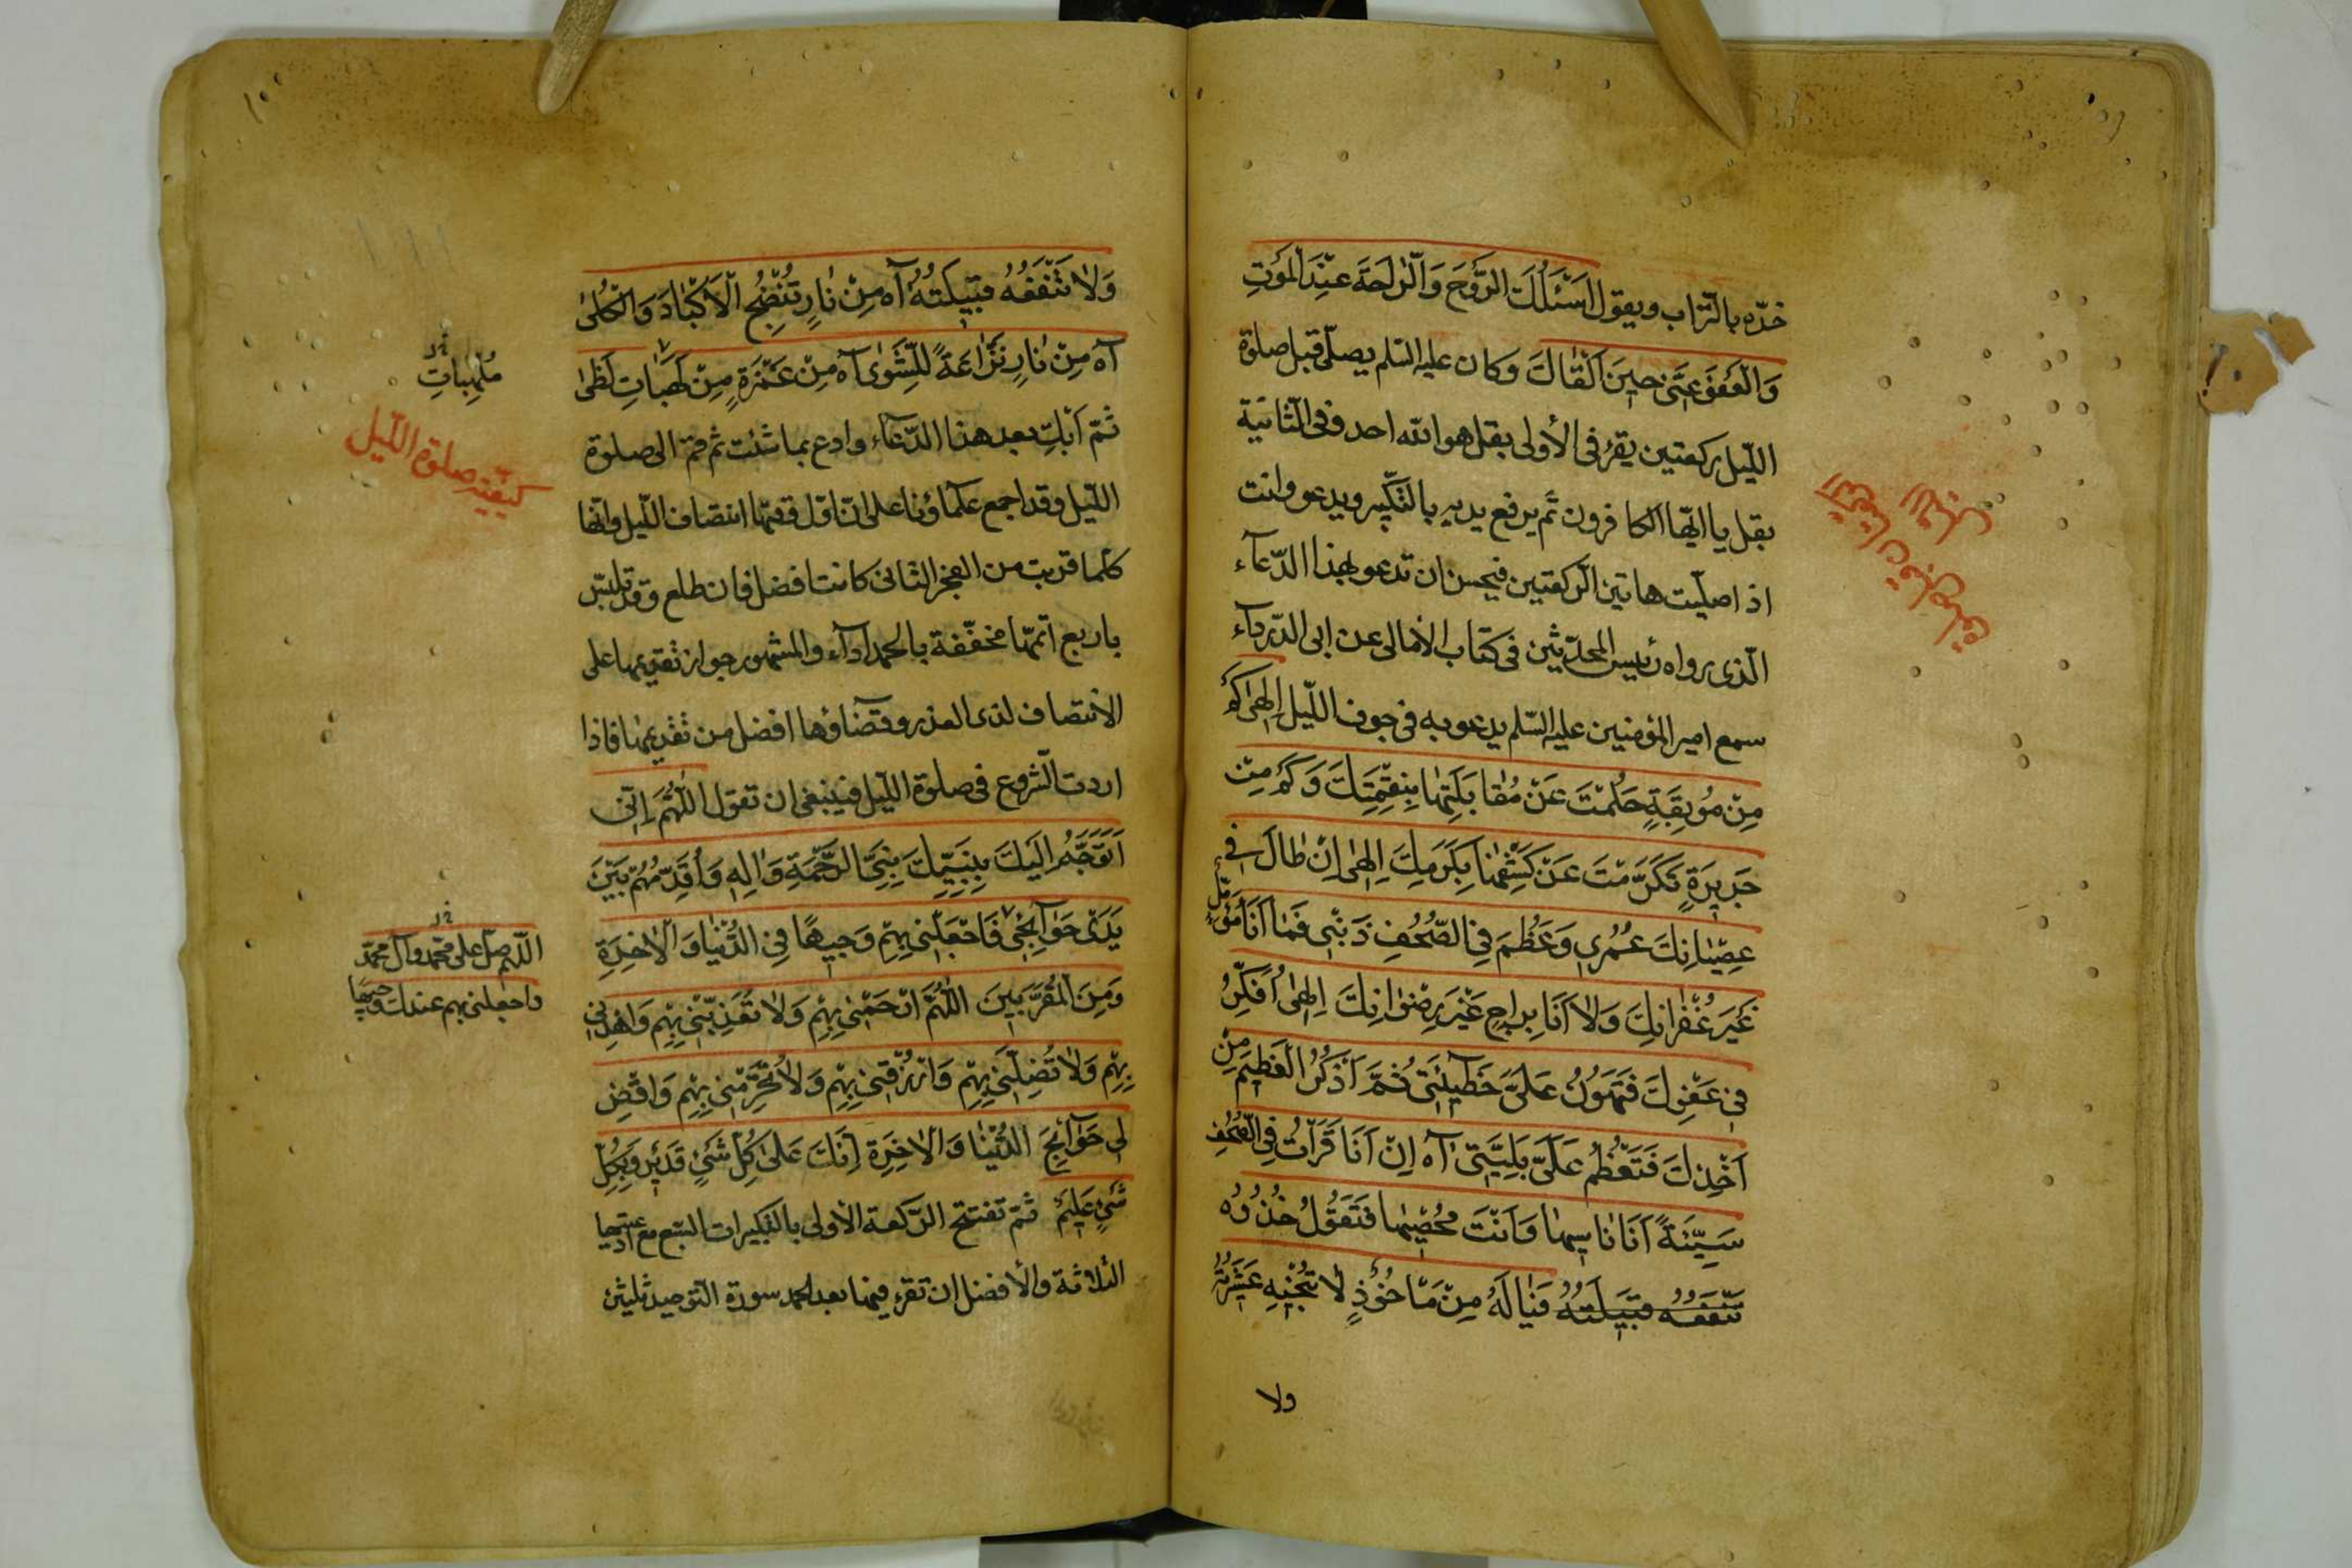 خدّه بالتّراب ويقول اَسْئَلُكَ الرَّوْحَ وَالرّٰاحَةَ عِنْدَ الْمَوْتِ
وَالْعَفْوَ عَنّى حينَ اَلْقٰاكَ وكان عليه السّلم يصلّى قبل صلوة
اللّيل ركعتين يقرء فى الأولى بقل هو الله احد وفى الثّانية
بقل يا ايّها الكافرون ثم يرفع يديه بالتّكبير ويدعو وانت
اذا صلّيت هاتين الرّكعتين فيحسن ان تدعو بهذا الدّعآء
الّذى رواه رئيس المحدّثين فى كتاب الأمالى عن ابى الدّرداء
سمع امير المؤمنين عليه السّلم يدعو به فى جوف اللّيل اِلٰهى كَمْ
مِنْ مُوبِقَةٍ حَلُمْتَ عَنْ مُقٰابَلَتِهٰا بِنِقْمَتِكَ وَكَمْ مِنْ
جَريرَةٍ تَكَرَّمْتَ عَنْ كَشْفِهٰا بِكَرَمِكَ اِلٰهى اِنْ طٰالَ فى
عِصْيٰانِكَ عُمُرى وَعَظُمَ فِى الصُّحُفِ ذَنْبى فَمٰا اَنَا مُؤَمِّلٌ
غَيْرَ غُفْرٰانِكَ وَلاٰ اَنَا بِرٰاجٍ غَيْرَ رِضْوٰانِكَ اِلٰهى اُفَكِّرُ
فى عَفْوِكَ فَتَهُونُ عَلَىَّ خَطيئَتى ثُمَّ اَذْكُرُ الْعَظيمَ مِنْ
اَخْذِكَ فَتَعْظُمُ عَلَىَّ بَلِيَّتى آه اِنْ اَنَا قَرَأْتُ فِى الصُّحُفِ
سَيِّئَةً اَنَا نٰاسيهٰا وَاَنْتَ مُحْصيهٰا فَتَقُولُ خُذُوهُ
تَنْفَعُهُ قَبيلَتُهُ فَيٰالَهُ مِنْ مَأْخُوذٍ لاٰ تُنْجيهِ عَشيرَتُهُ
ولا
وَلاٰ تَنْفَعُهُ قَبيلَتُهُ آه مِنْ نٰارٍ تُنْضِجُ الْاَكْبٰادَ وَالْكُلىٰ
آه مِنْ نٰارٍ نَزّٰاعَةً لِلشَّوىٰ آه مِنْ غَمْرَةٍ مِنْ لَهَبٰاتِ لَظىٰ
مُلْهِبٰاتِ
ثمّ ابكِ بعد هذا الدّعآء وادع بما شئت ثم قم الى صلوة
كيفيّة صلوة اللّيل
اللّيل وقد اجمع علمآؤنا على انّ اوّل وقتها انتصاف اللّيل وانّها
كلّما قربت من الفجر الثّانى كانت افضل فان طلع وقد تلبّس
باربع اتمّها مخفّفة بالحمد ادآء والمشهور جواز تقديمها على
الانتصاف لذى العذر وقضاؤها افضل من تقديمها فاذا
اردت الشّروع فى صلوة اللّيل فينبغى ان تقول اَللّٰهُمَّ اِنّى
اَتَوَجَّهُ اِلَيْكَ بِنَبِيِّكَ نَبِىِّ الرَّحْمَةِ وَاٰلِهِ وَاُقَدِّمُهُمْ بَيْنَ
يَدَىْ حَوٰآئِجى فَاجْعَلْنى بِهِمْ وَجيهاً فِى الدُّنْيٰا وَالْاٰخِرَةِ
اللّهم صلّ على محمّد وآل محمّد
واجعلنى بهم عندك وجيها
وَمِنَ الْمُقَرَّبينَ اَللّٰهُمَّ ارْحَمْنى بِهِمْ وَلاٰ تُعَذِّبْنى بِهِمْ وَاهْدِنى
بِهِمْ وَلاٰ تُضِلَّنى بِهِمْ وَارْزُقْنى بِهِمْ وَلاٰ تَحْرِمْنى بِهِمْ وَاقْضِ
لى حَوٰآئِجَ الدُّنْيٰا وَالْاٰخِرَةِ اِنَّكَ عَلىٰ كُلِّ شَىْءٍ قَديرٌ وَبِكُلِّ
شَىْءٍ عَليمٌ ثمّ تفتتح الرّكعة الأولى بالتّكبيرات السّبع مع ادعيتها
الثّلاثة والأفضل ان تقرء فيها بعد الحمد سورة التّوحيد ثلثين